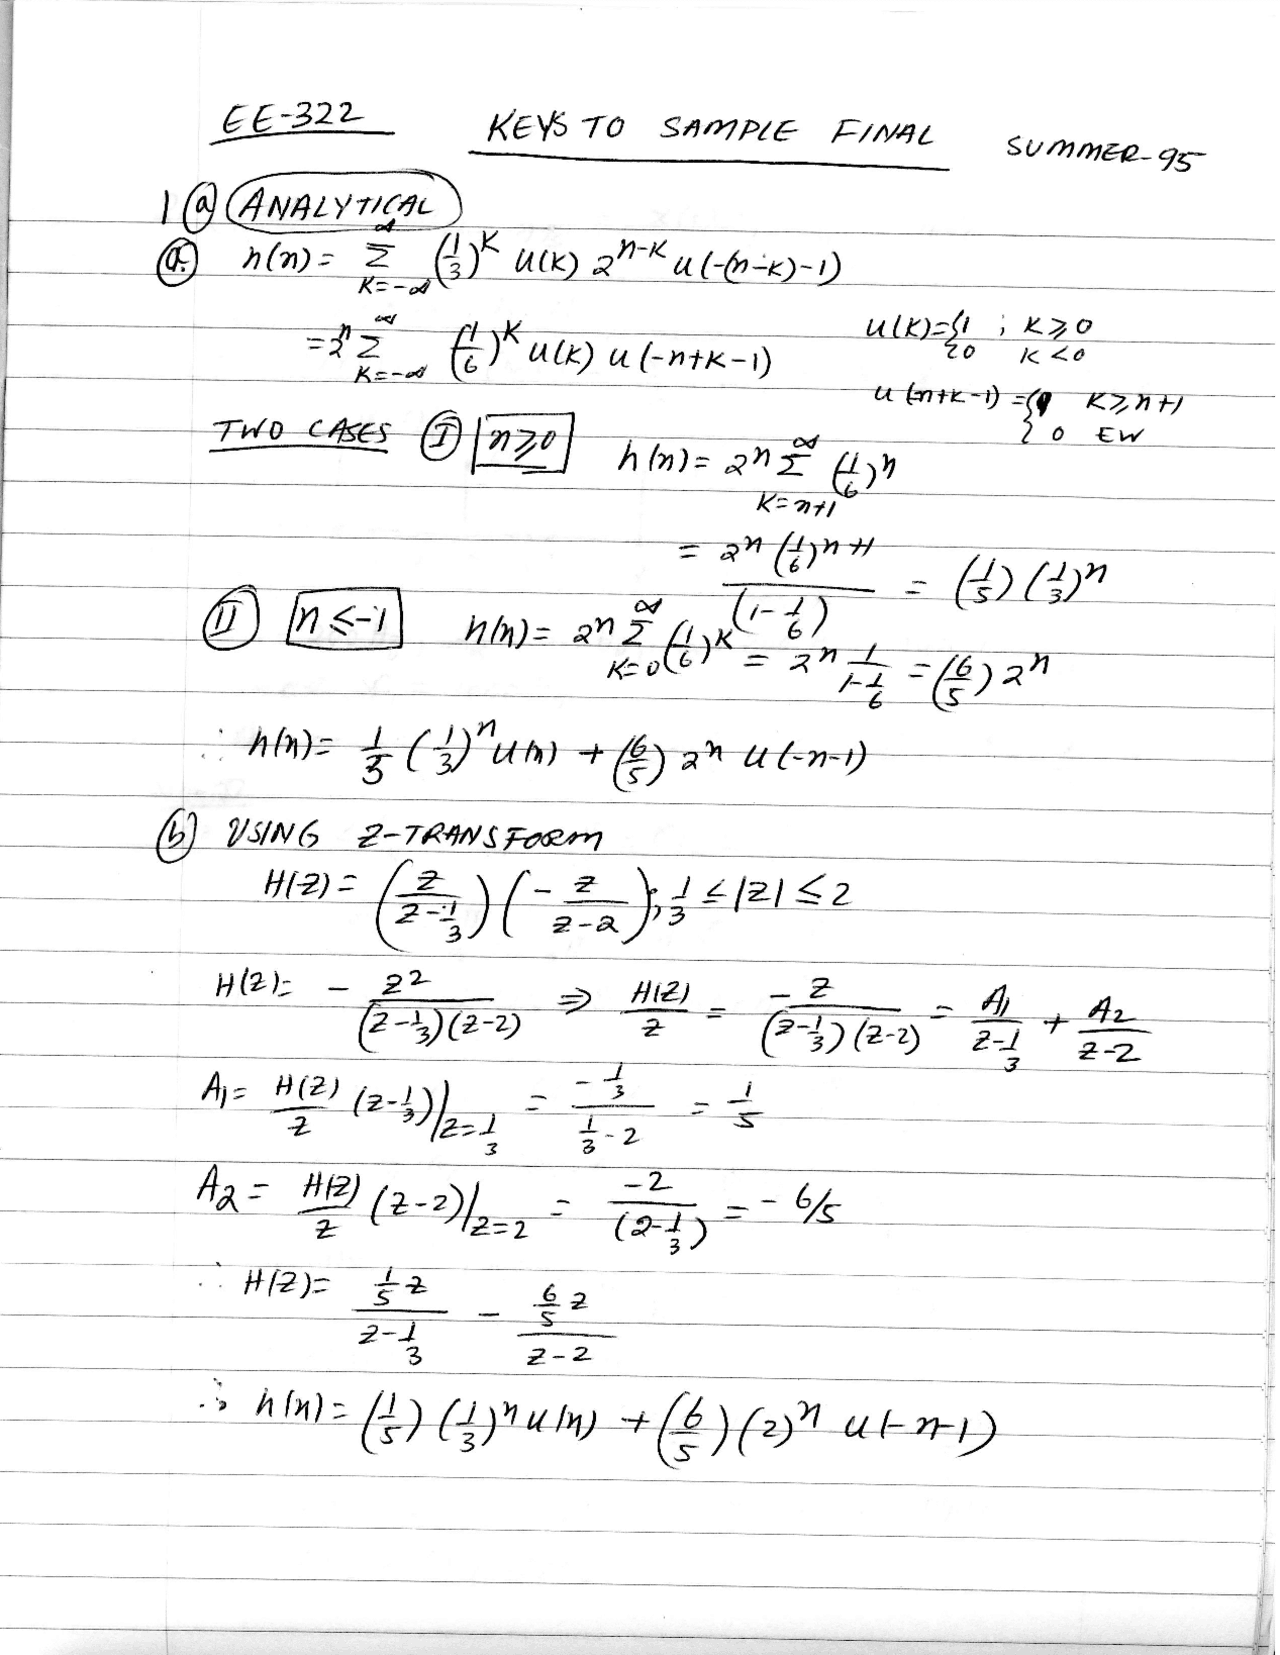 EE-322 KEYS TO SAMPLE FINAL SUMMER-95
1 (a) ANALYTICAL
(a.) h(n) = Σ_{K=-∞}^{∞} (1/3)^K u(K) 2^{n-K} u(-(n-K)-1)
= 2^n Σ_{K=-∞}^{∞} (1/6)^K u(K) u(-n+K-1) u(K) = {1 ; K≥0
{0 K<0
u(-n+K-1) = {1 K≥n+1
{0 EW
TWO CASES (I) n≥0 h(n) = 2^n Σ_{K=n+1}^{∞} (1/6)^n
= 2^n (1/6)^{n+1} / (1-1/6) = (1/5) (1/3)^n
(II) n≤-1 h(n) = 2^n Σ_{K=0}^{∞} (1/6)^K = 2^n 1/(1-1/6) = (6/5) 2^n
∴ h(n) = 1/5 (1/3)^n u(n) + (6/5) 2^n u(-n-1)
(b) USING Z-TRANSFORM
H(Z) = (Z/(Z-1/3)) (-Z/(Z-2)); 1/3 ≤ |Z| ≤ 2
H(Z) = - Z^2/((Z-1/3)(Z-2)) ⇒ H(Z)/Z = -Z/((Z-1/3)(Z-2)) = A1/(Z-1/3) + A2/(Z-2)
A1 = H(Z)/Z (Z-1/3)|_{Z=1/3} = (-1/3)/(1/3-2) = 1/5
A2 = H(Z)/Z (Z-2)|_{Z=2} = -2/(2-1/3) = -6/5
∴ H(Z) = (1/5 Z)/(Z-1/3) - (6/5 Z)/(Z-2)
∴ h(n) = (1/5) (1/3)^n u(n) + (6/5) (2)^n u(-n-1)